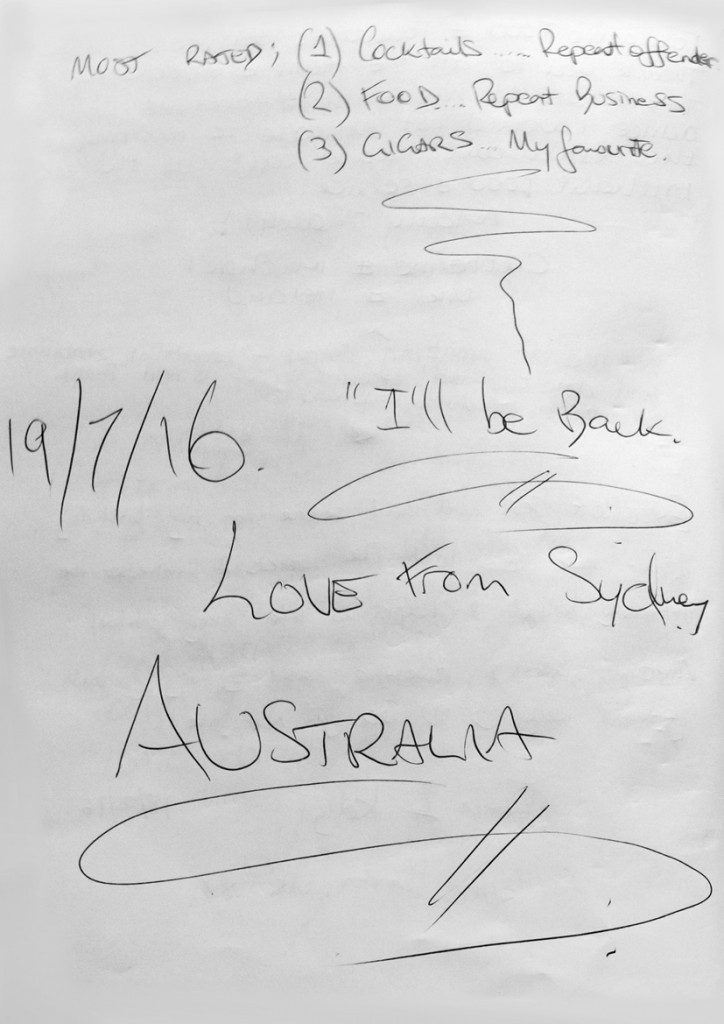 MOST RATED; (1) Cocktails ..... Repeat offender
(2) FOOD... Repeat Business
(3) CIGARS... My favourite.
19/7/16.
"I'll be Back.
LOVE From Sydney
AUSTRALIA